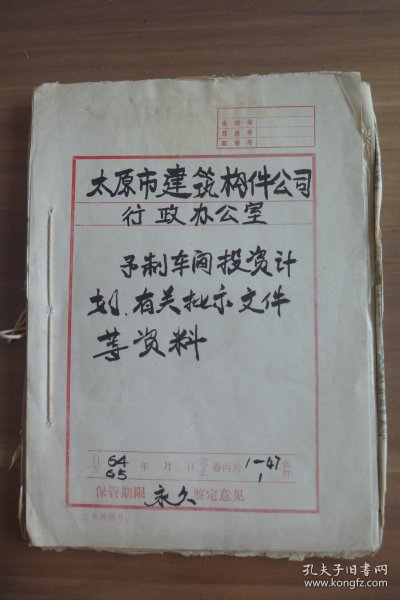 全宗号
目录号
案卷号
太原市建筑构件公司
行政办公室
予制车间投资计
划、有关批示文件
等资料
自 64 年 月 日起 卷内共 1-47 张
至 65 止 1 件
保管期限 永久 鉴定意见
孔夫子旧书网
www.kongfz.com